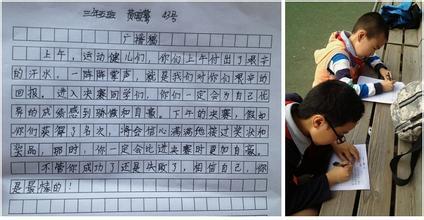 三年五班 黄 42号
广播稿
上午，运动健儿们，你们上午付出了艰辛
的汗水，一阵阵掌声，就是我们对你们艰辛的
回报。进入决赛同学们，你们一定会为自己优
异的成绩感到骄傲和自豪。下午的决赛，假如
你们获得了名次，将会信心满满地接过奖状和
奖品，那时，你一定会比进决赛时更加自豪。
不管你成功了还是失败了，相信自己，你
是最棒的！